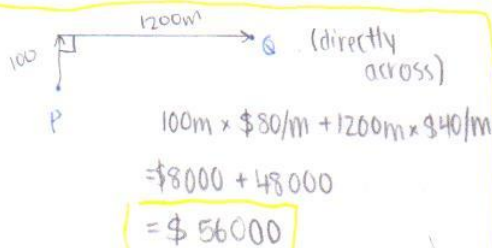 1200m
100
Q (directly
across)
P
100m x $80/m + 1200m x $40/m
=$8000 + 48000
= $ 56000